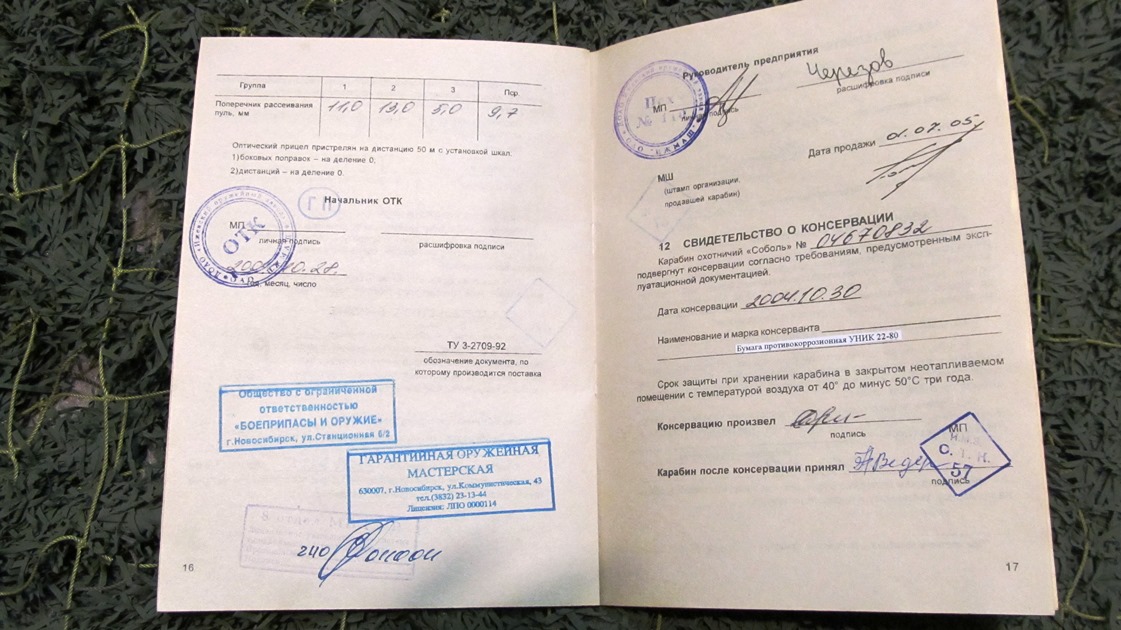 Группа 1 2 3 Пср.
Поперечник рассеивания
пуль, мм 11,0 13,0 5,0 9,7
Оптический прицел пристрелян на дистанцию 50 м с установкой шкал:
1)боковых поправок – на деление 0;
2)дистанций – на деление 0.
ГП
Начальник ОТК
МП
личная подпись
расшифровка подписи
ОТК
10.28
год, месяц, число
ТУ 3-2709-92
обозначение документа, по
которому производится поставка
Общество с ограниченной
ответственностью
«БОЕПРИПАСЫ И ОРУЖИЕ»
г.Новосибирск, ул.Станционная 6/2
ГАРАНТИЙНАЯ ОРУЖЕЙНАЯ
МАСТЕРСКАЯ
630007, г.Новосибирск, ул.Коммунистическая, 43
тел.(3832) 23-13-44
Лицензия: ЛПО 0000114
16
Руководитель предприятия
Черезов
МП
личная подпись
расшифровка подписи
Дата продажи 01.07.05
МШ
(штамп организации,
продавшей карабин)
12 СВИДЕТЕЛЬСТВО О КОНСЕРВАЦИИ
Карабин охотничий «Соболь» № 04670832
подвергнут консервации согласно требованиям, предусмотренным эксп-
луатационной документацией.
Дата консервации 2004.10.30
Наименование и марка консерванта
Бумага противокоррозионная УНИК 22-80
Срок защиты при хранении карабина в закрытом неотапливаемом
помещении с температурой воздуха от 40° до минус 50°С три года.
Консервацию произвел
подпись
МП
С. Т. К.
57
Карабин после консервации принял
подпись
17